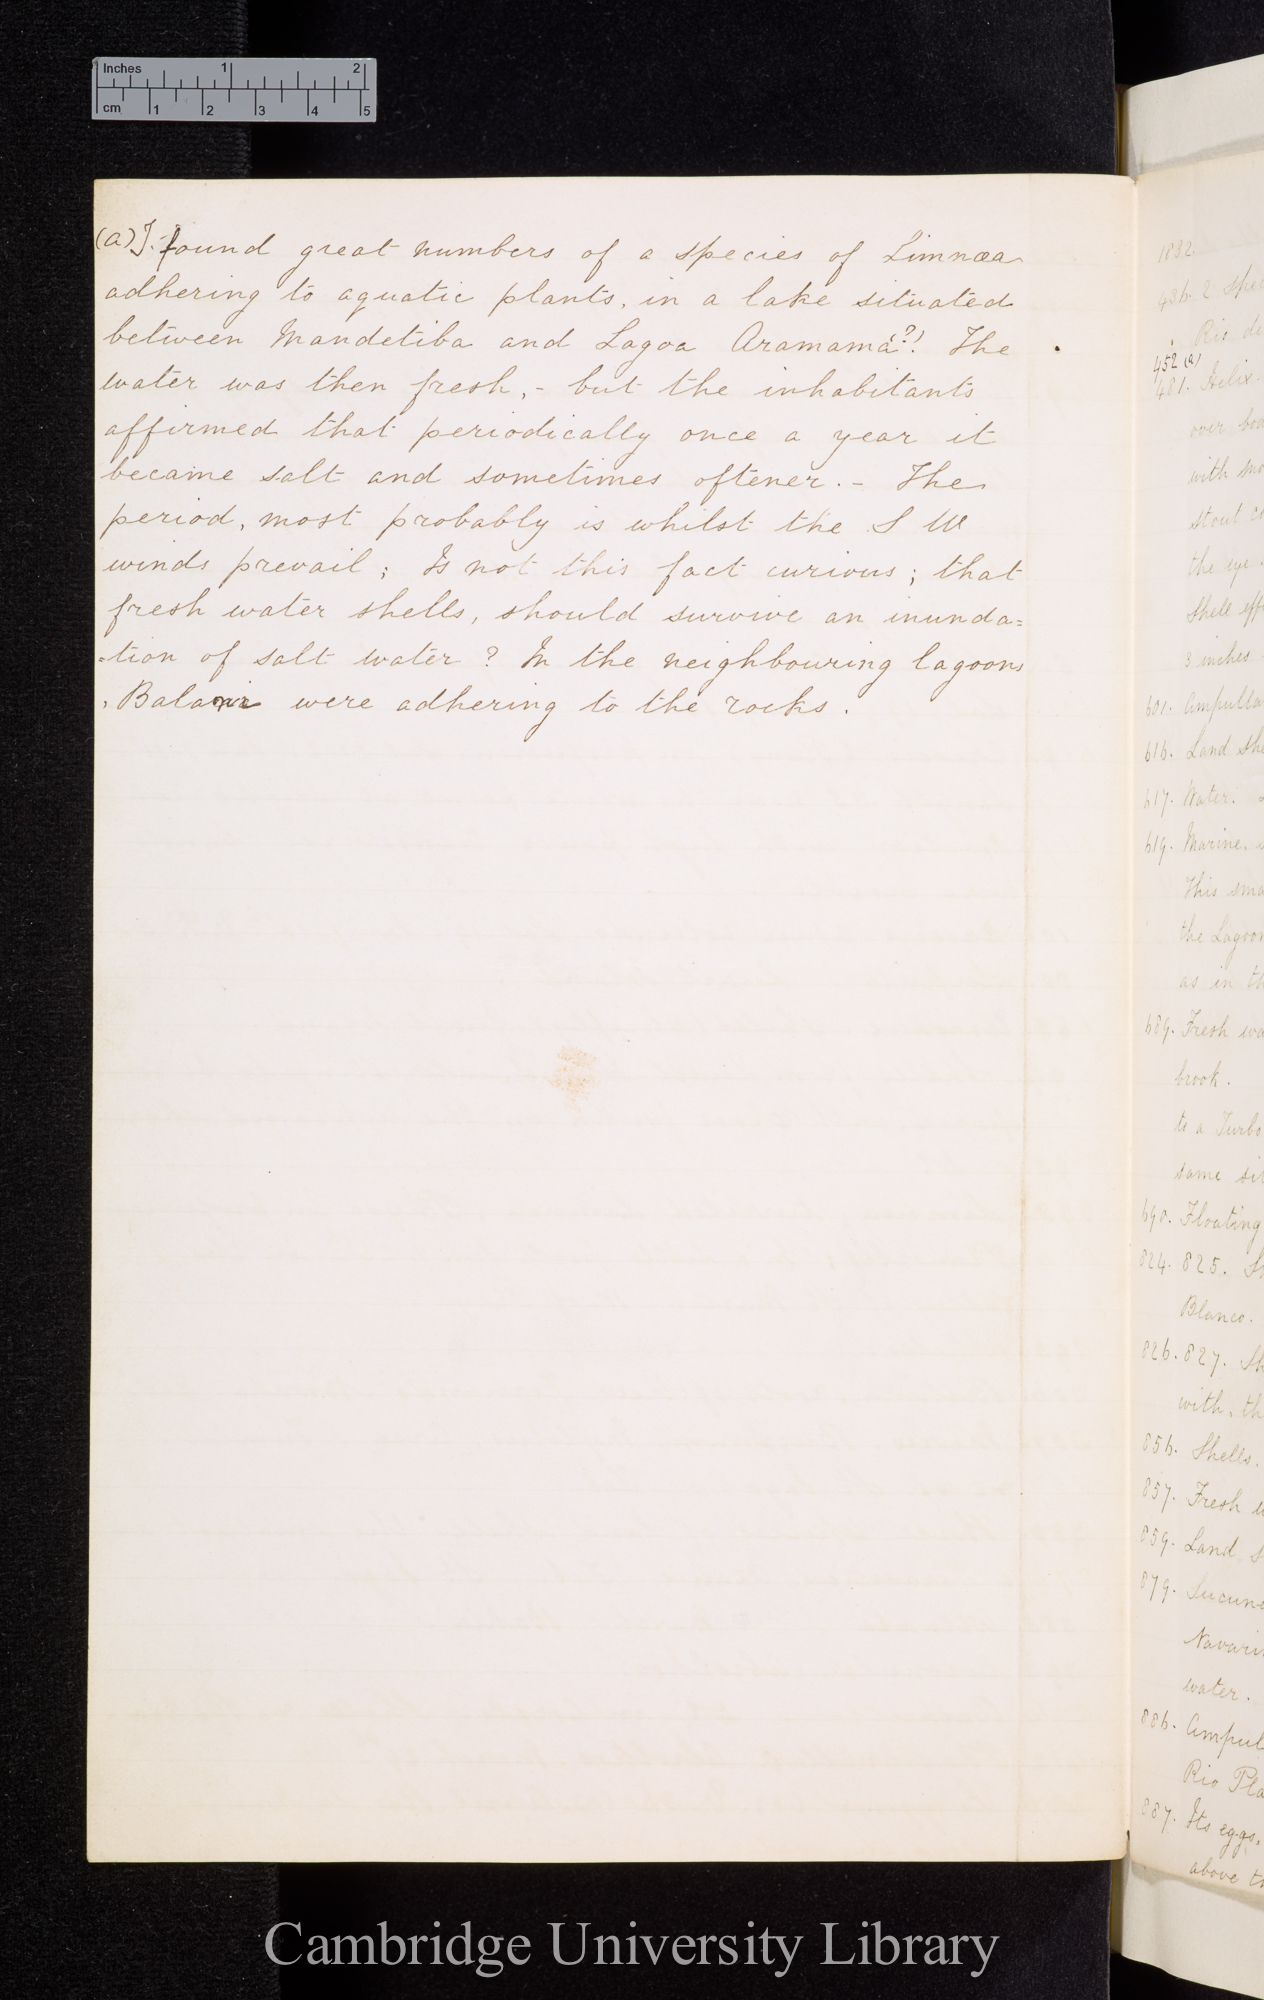 Inches 1 2
cm 1 2 3 4 5
(a) I found great numbers of a species of Limnæa
adhering to aquatic plants, in a lake situated
between Mandetiba and Lagoa Aramama(?). The
water was then fresh, - but the inhabitants
affirmed that periodically once a year it
became salt and sometimes oftener. - The
period, most probably is whilst the S W
winds prevail; Is not this fact curious; that
fresh water shells, should survive an inunda=
=tion of salt water? In the neighbouring lagoons
Balani were adhering to the rocks.
1832.
436. 2 Spec
Rio de
452 (a)
481. Helix.
over
with
stout
the eye.
Shell
3 inches
601. Ampulla
616. Land She
617. Water.
619. Marine.
This sma
the Lagoon
as in th
689. Fresh wa
brook.
to a Turbo
same
690. Floating
824. 825.
Blanco.
826. 827. Sh
with, th
856. Shells.
857. Fresh w
859. Land S
879.
Navari
water.
886. Ampul
Rio Pla
887. Its eggs,
above
Cambridge University Library